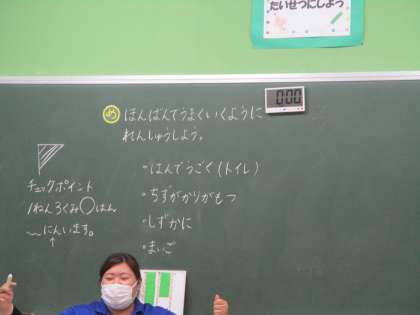 たいせつにしよう
0:00
め ほんばんでうまくいくように
れんしゅうしよう。
・はんでうごく(トイレ)
・ちずがかりがもつ
・しずかに
・まいご
チェックポイント
1ねん3くみ〇はん
〜にんいます。
↑